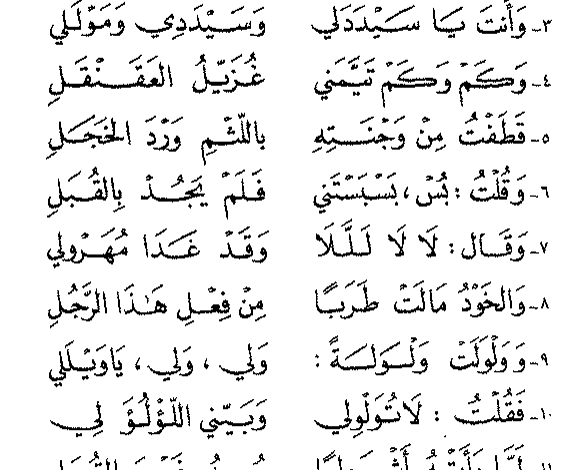 ٣- وَأَنتَ يَا سَيِّدَدَلِي وَسَيِّدَدِي وَمَوْلَلِي
٤- وَكَمْ وَكَمْ تَيَّمَني غُزَيِّلُ العَقَنْقَلِ
٥- قَطَفْتُ مِنْ وَجْنَتِهِ بِاللَّثْمِ وَرْدَ الخَجَلِ
٦- وَقُلْتُ : بُسْ ، بَسْبَسْتَني فَلَمْ يَجُدْ بِالقُبَلِ
٧- وَقَالَ : لَا لَا لَلَلَا وَقَدْ غَدَا مُهَرْوِلي
٨- وَالخَوْدُ مَالَتْ طَرَبًا مِنْ فِعْلِ هَذَا الرَّجُلِ
٩- وَوَلْوَلَتْ وَلْوَلَةً : وَلي ، وَلي ، يَاوَيْلَلي
١٠- فَقُلْتُ : لَاتُوَلْوِلي وَبَيِّني اللُّؤْلُؤَ لِي